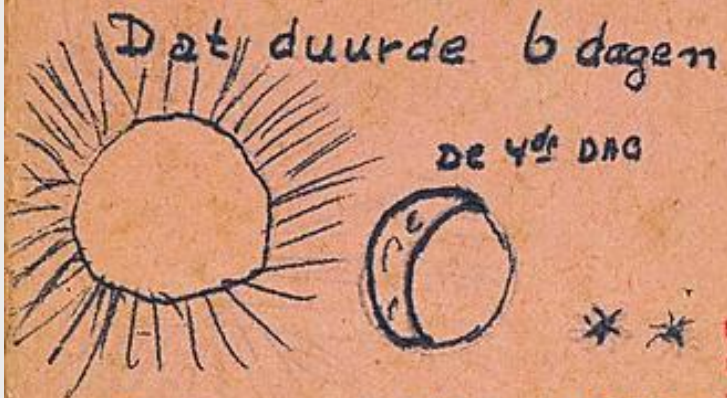 Dat duurde 6 dagen
De 4de DAG